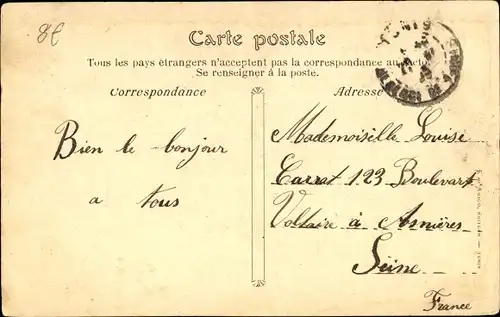 8€
Carte postale
Tous les pays étrangers n'acceptent pas la correspondance au recto
Se renseigner à la poste.
Correspondance
Adresse
TUNIS
Bien le bonjour
a tous
Mademoiselle Louise
Carrat 123 Boulevart
Voltaire à Asnières
Seine
France